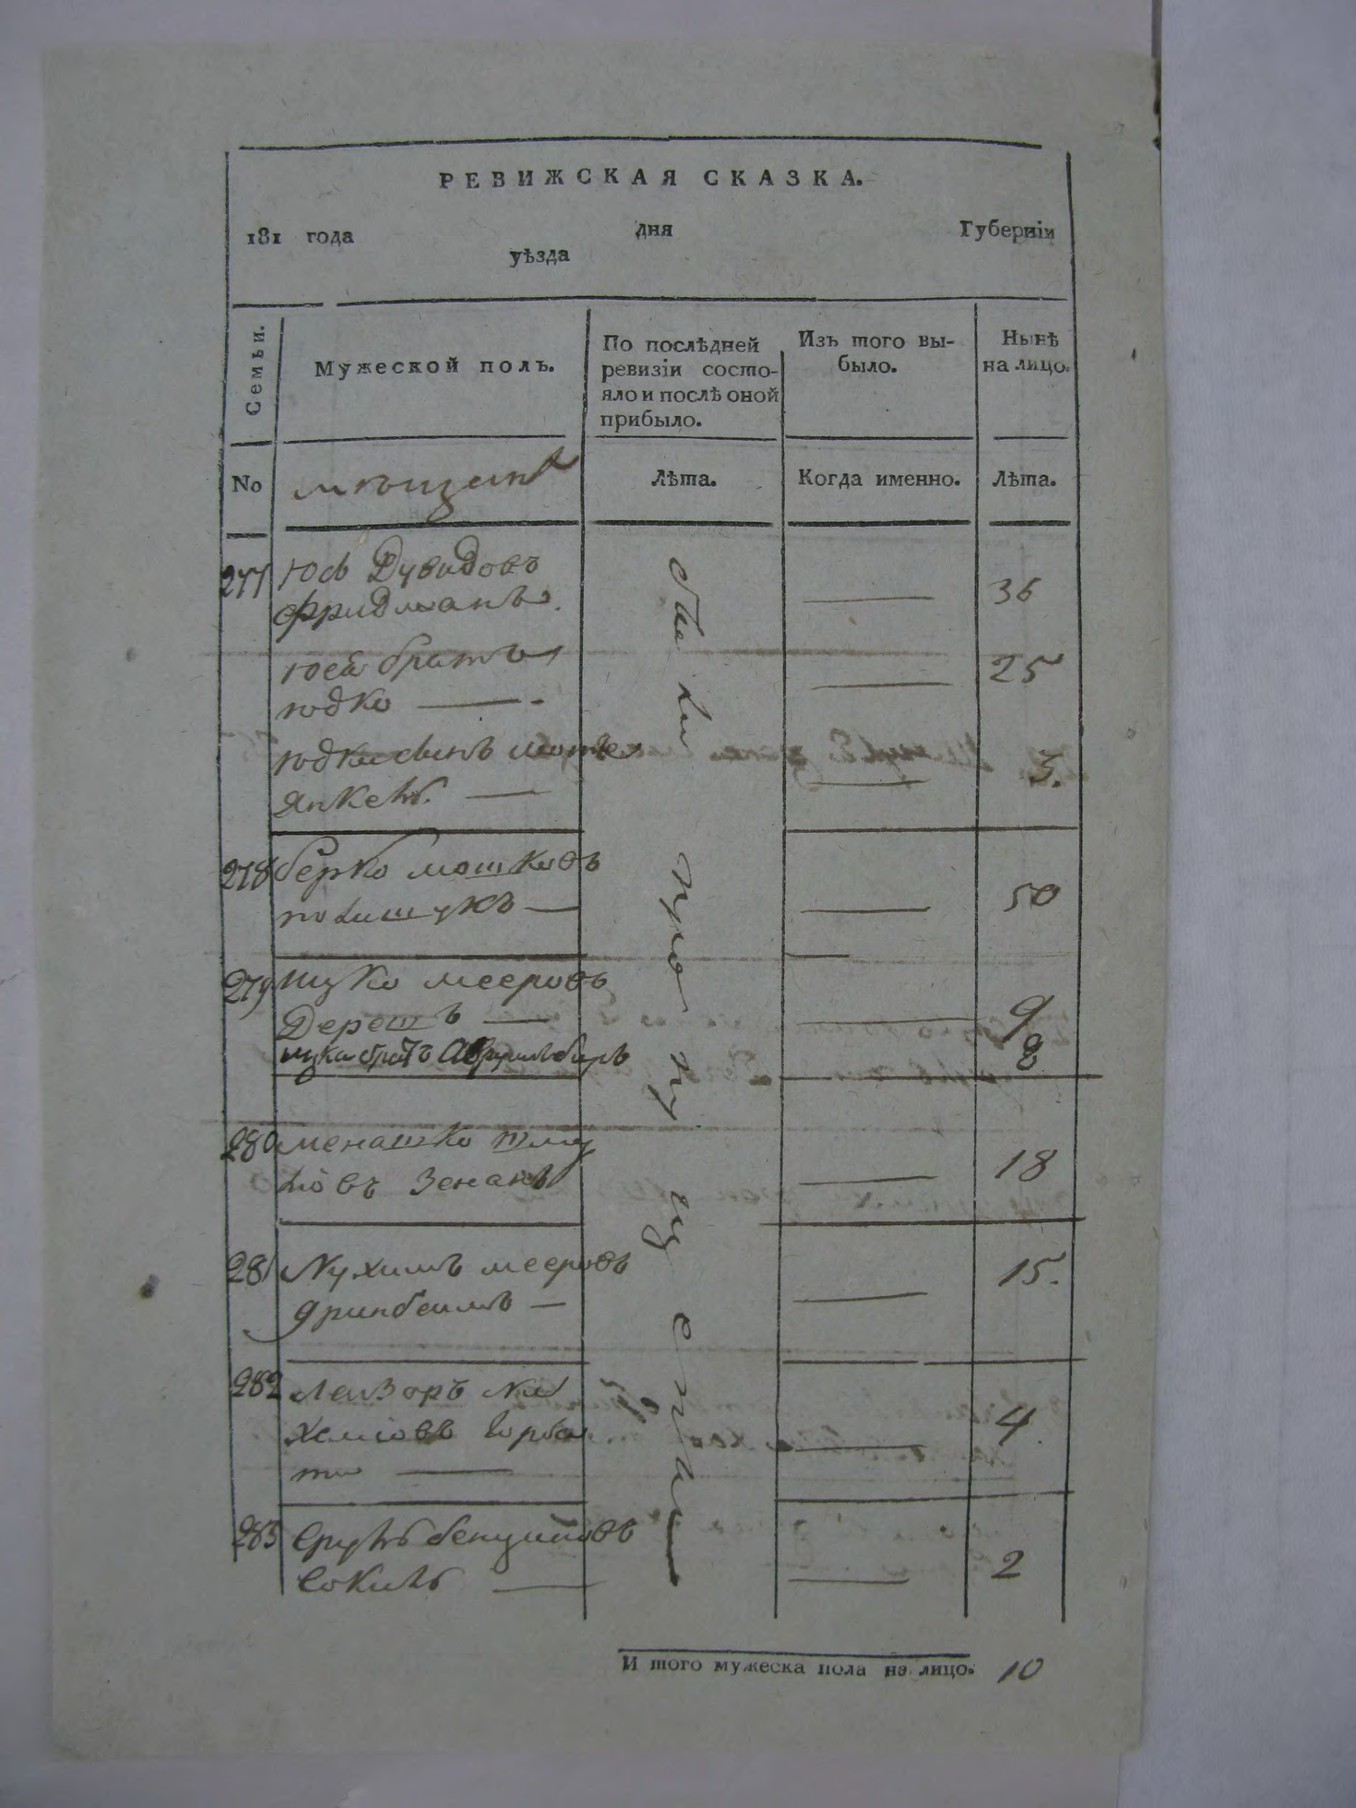 РЕВИЖСКАЯ СКАЗКА.
181 года дня Губерніи
уѣзда
Семьи.
Мужеской полъ.
По послѣдней ревизіи состояло и послѣ оной прибыло.
Изъ того выбыло.
Нынѣ на лицо.
No
мѣщанѣ
Лѣта.
Когда именно.
Лѣта.
277 Юсь Дувидовъ
Фридманъ. 36
Юся братъ
Юдко 25
Юдки сынъ
Янкель. 3.
278 Берко Мошковъ
Полищукъ 50
279 Ицко Мееровъ
Дерешъ 9
Ицка братъ 8
280 Менашко
Зенанъ 18
281 Нухимъ Мееровъ
Гринбеимъ 15.
282 Леизоръ Ми
хелiовъ Горба
ти 4
283 Сруль
Сокилъ 2
они пропущены
И того мужеска пола на лицо. 10